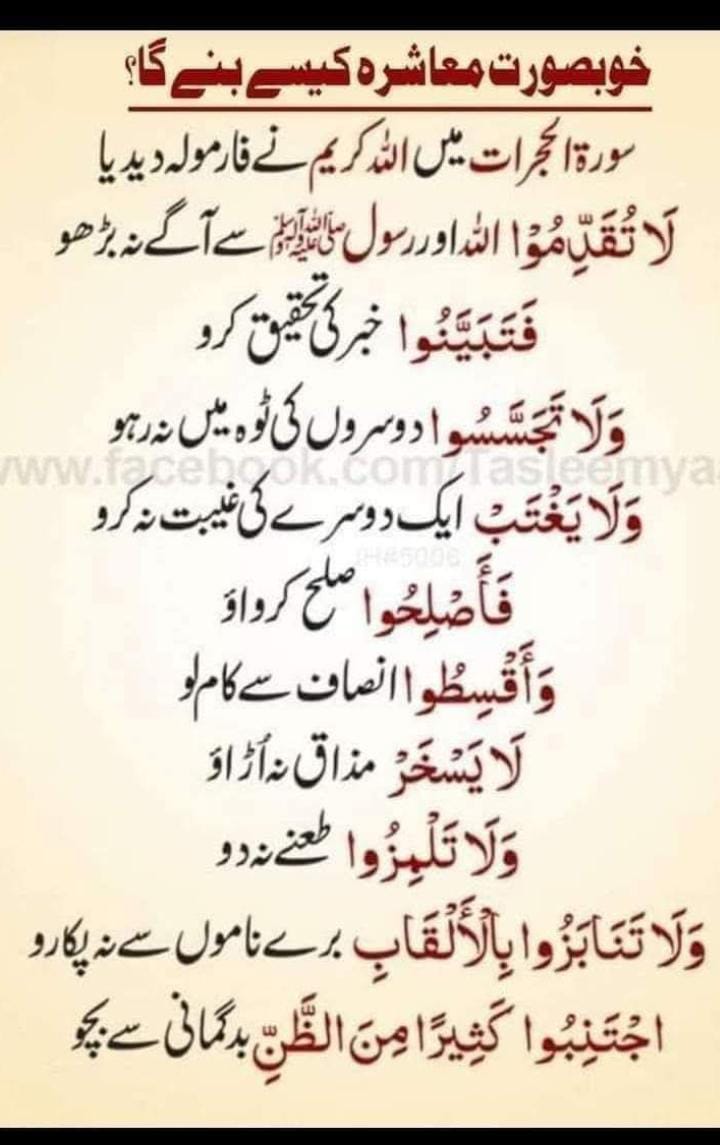 خوبصورت معاشرہ کیسے بنے گا؟
سورۃ الحجرات میں اللہ کریم نے فارمولہ دیدیا
لَا تُقَدِّمُوْا اللہ اور رسول ﷺ سے آگے نہ بڑھو
فَتَبَيَّنُوا خبر کی تحقیق کرو
وَلَا تَجَسَّسُوا دوسروں کی ٹوہ میں نہ رہو
www.facebook.com/Tasleemya
وَلَا يَغْتَبْ ایک دوسرے کی غیبت نہ کرو
فَأَصْلِحُوا صلح کرواؤ
وَأَقْسِطُوا انصاف سے کام لو
لَا يَسْخَرْ مذاق نہ اُڑاؤ
وَلَا تَلْمِزُوا طعنے نہ دو
وَلَا تَنَابَزُوا بِالْأَلْقَابِ برے ناموں سے نہ پکارو
اجْتَنِبُوا كَثِيرًا مِنَ الظَّنِّ بدگمانی سے بچو